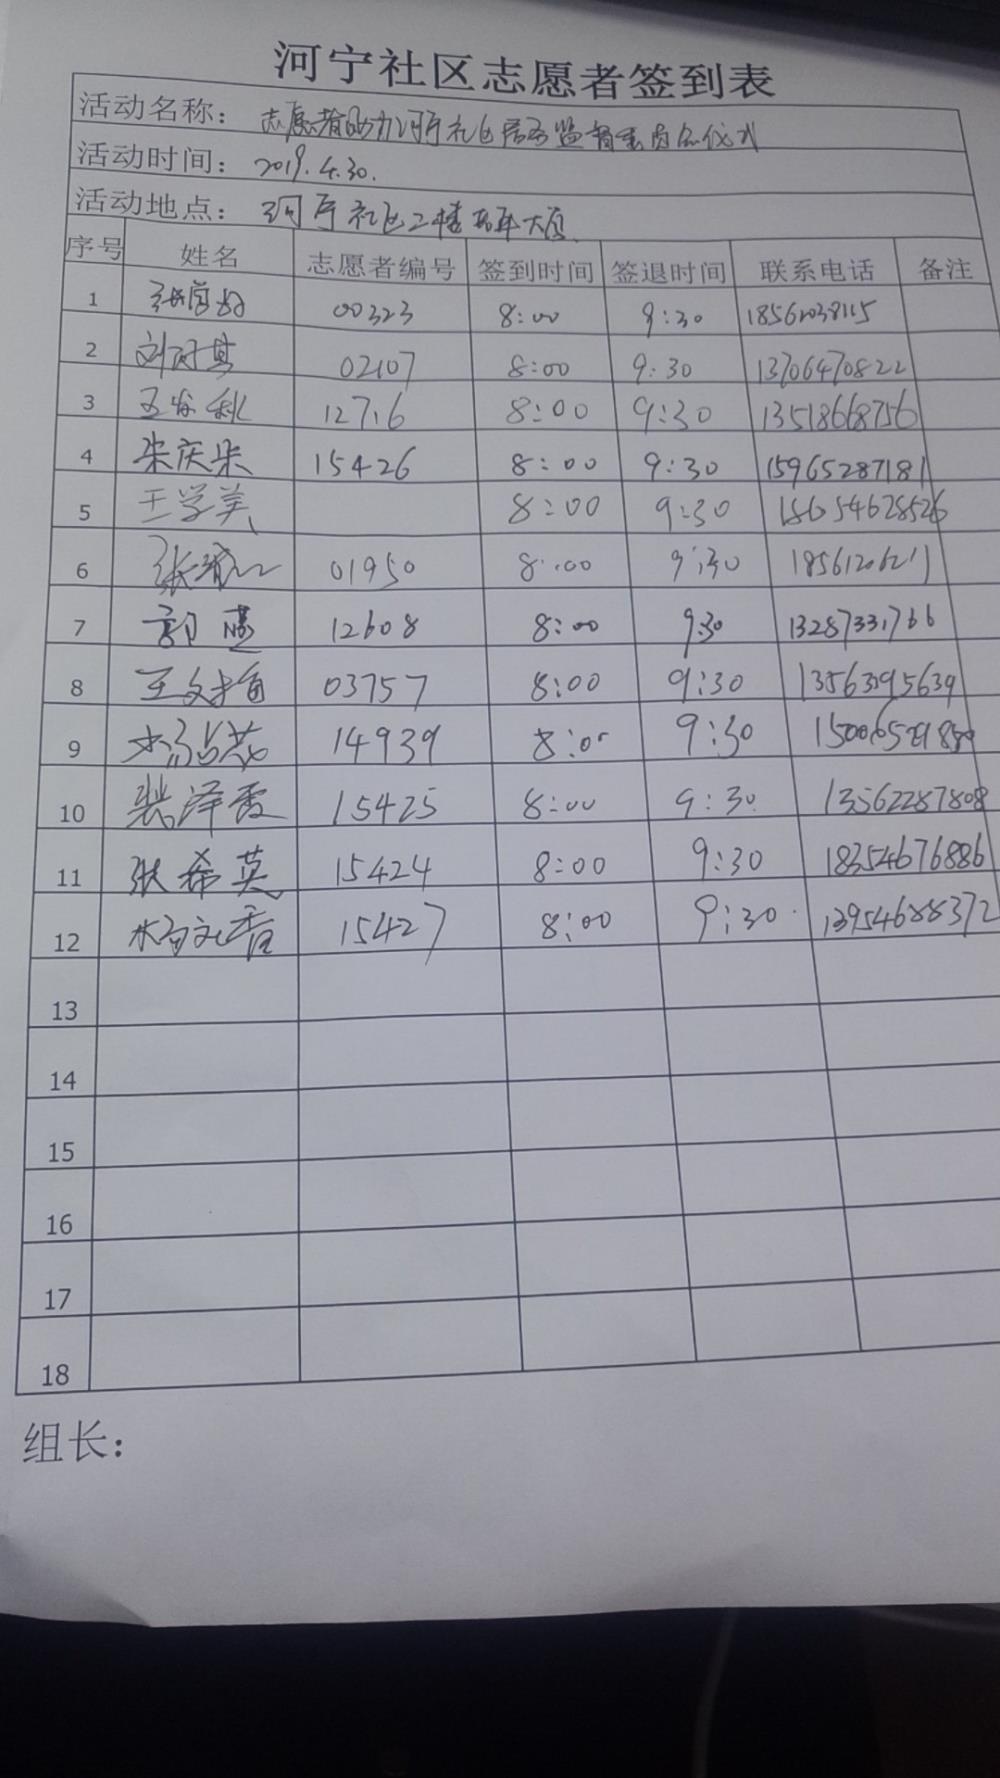 河宁社区志愿者签到表
活动名称：志愿者助力河宁社区居务监督委员会仪式
活动时间：2019.4.30.
活动地点：河宁社区二楼 大厅
序号 姓名 志愿者编号 签到时间 签退时间 联系电话 备注
1 00323 8:00 9:30 18561038115
2 02107 8:00 9:30 13706470822
3 12716 8:00 9:30 13518668756
4 15426 8:00 9:30 15965287181
5 王学美 8:00 9:30 18654628526
6 01950 8:00 9:30
7 12608 8:00 9:30 13287331766
8 03757 8:00 9:30 13563195639
9 14939 8:00 9:30
10 裴泽霞 15425 8:00 9:30 13562287808
11 张希英 15424 8:00 9:30 18354676886
12 杨文香 15427 8:00 9:30 13954688372
13
14
15
16
17
18
组长：